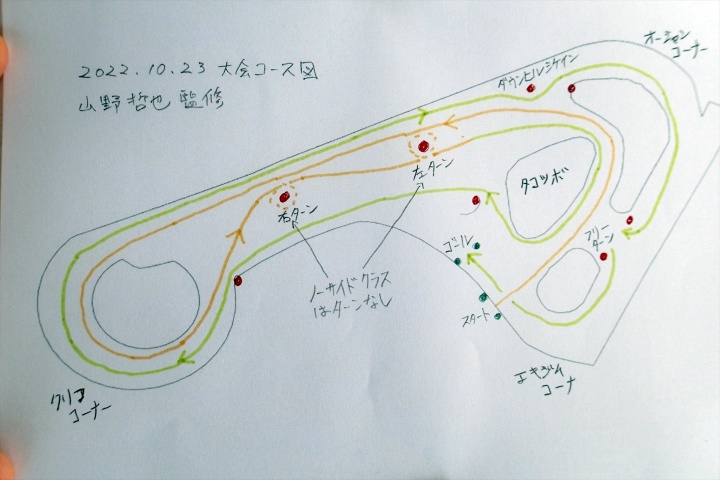 2022.10.23 大会コース図
山野哲也 監修
オーシャン
コーナー
ダウンヒルシケイン
左ターン
タコツボ
右ターン
フリー
ターン
ゴール
ノーサイドクラス
はターンなし
スタート
エキジム
コーナ
クリフ
コーナー